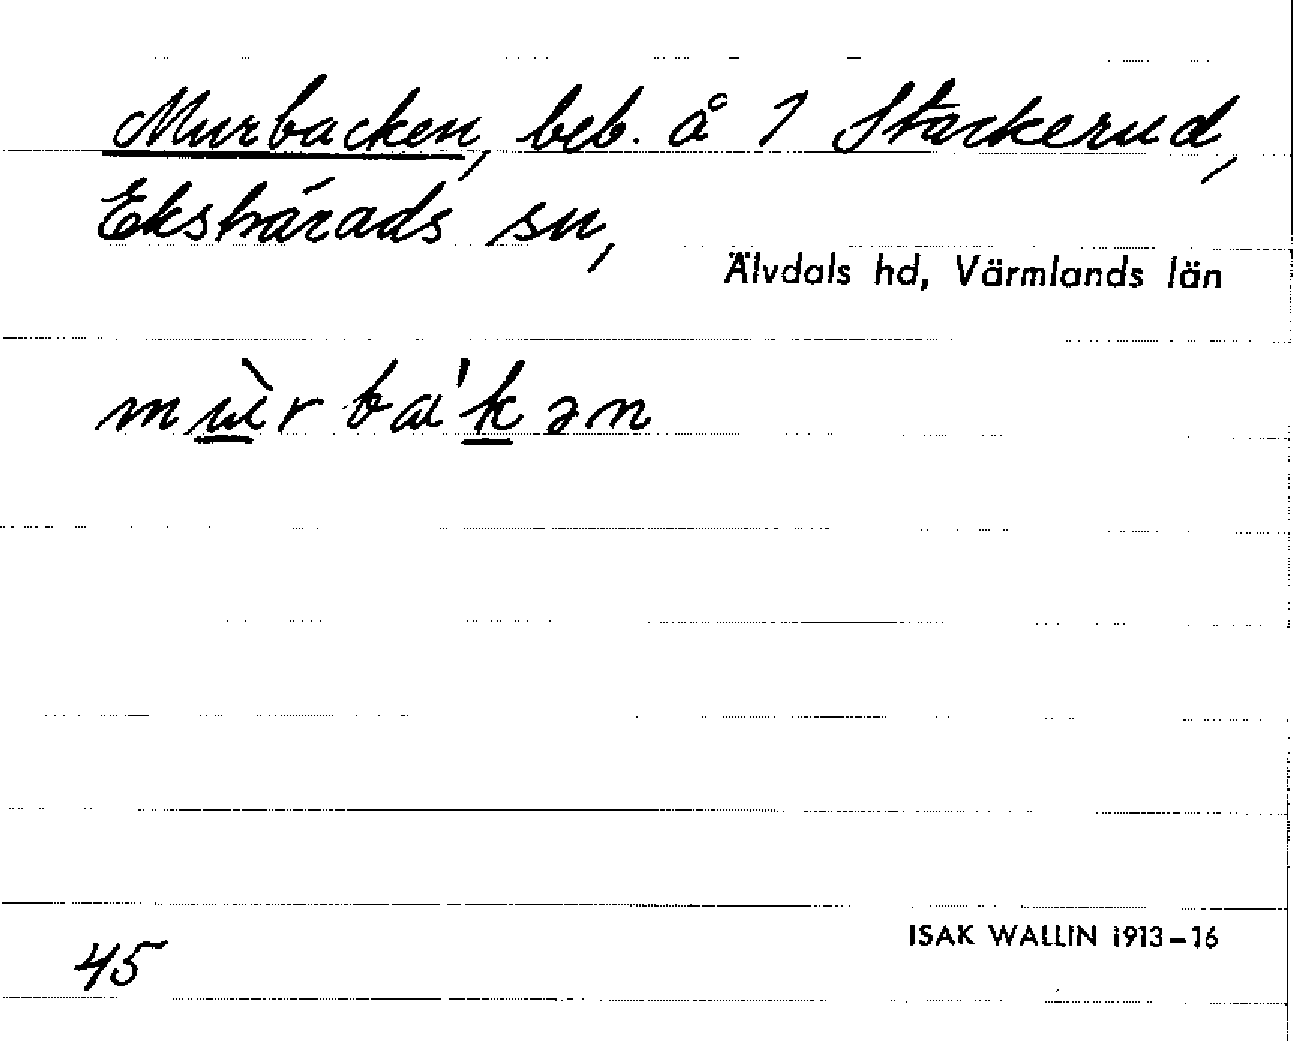 Murbacken, beb. å 1 Stackerud,
Ekshärads sn,
Älvdals hd, Värmlands län
mù̲rba'k̲ən
45
ISAK WALLIN 1913–16